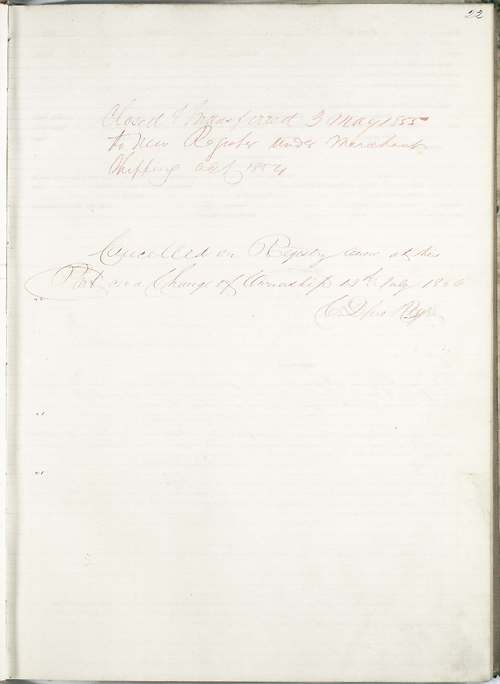 22
Closed & Transferred 3 May 1855
to New Register under Merchant
Shipping Act 1854
Cancelled on Registry anew at this
Port on a Change of Ownership 13th July